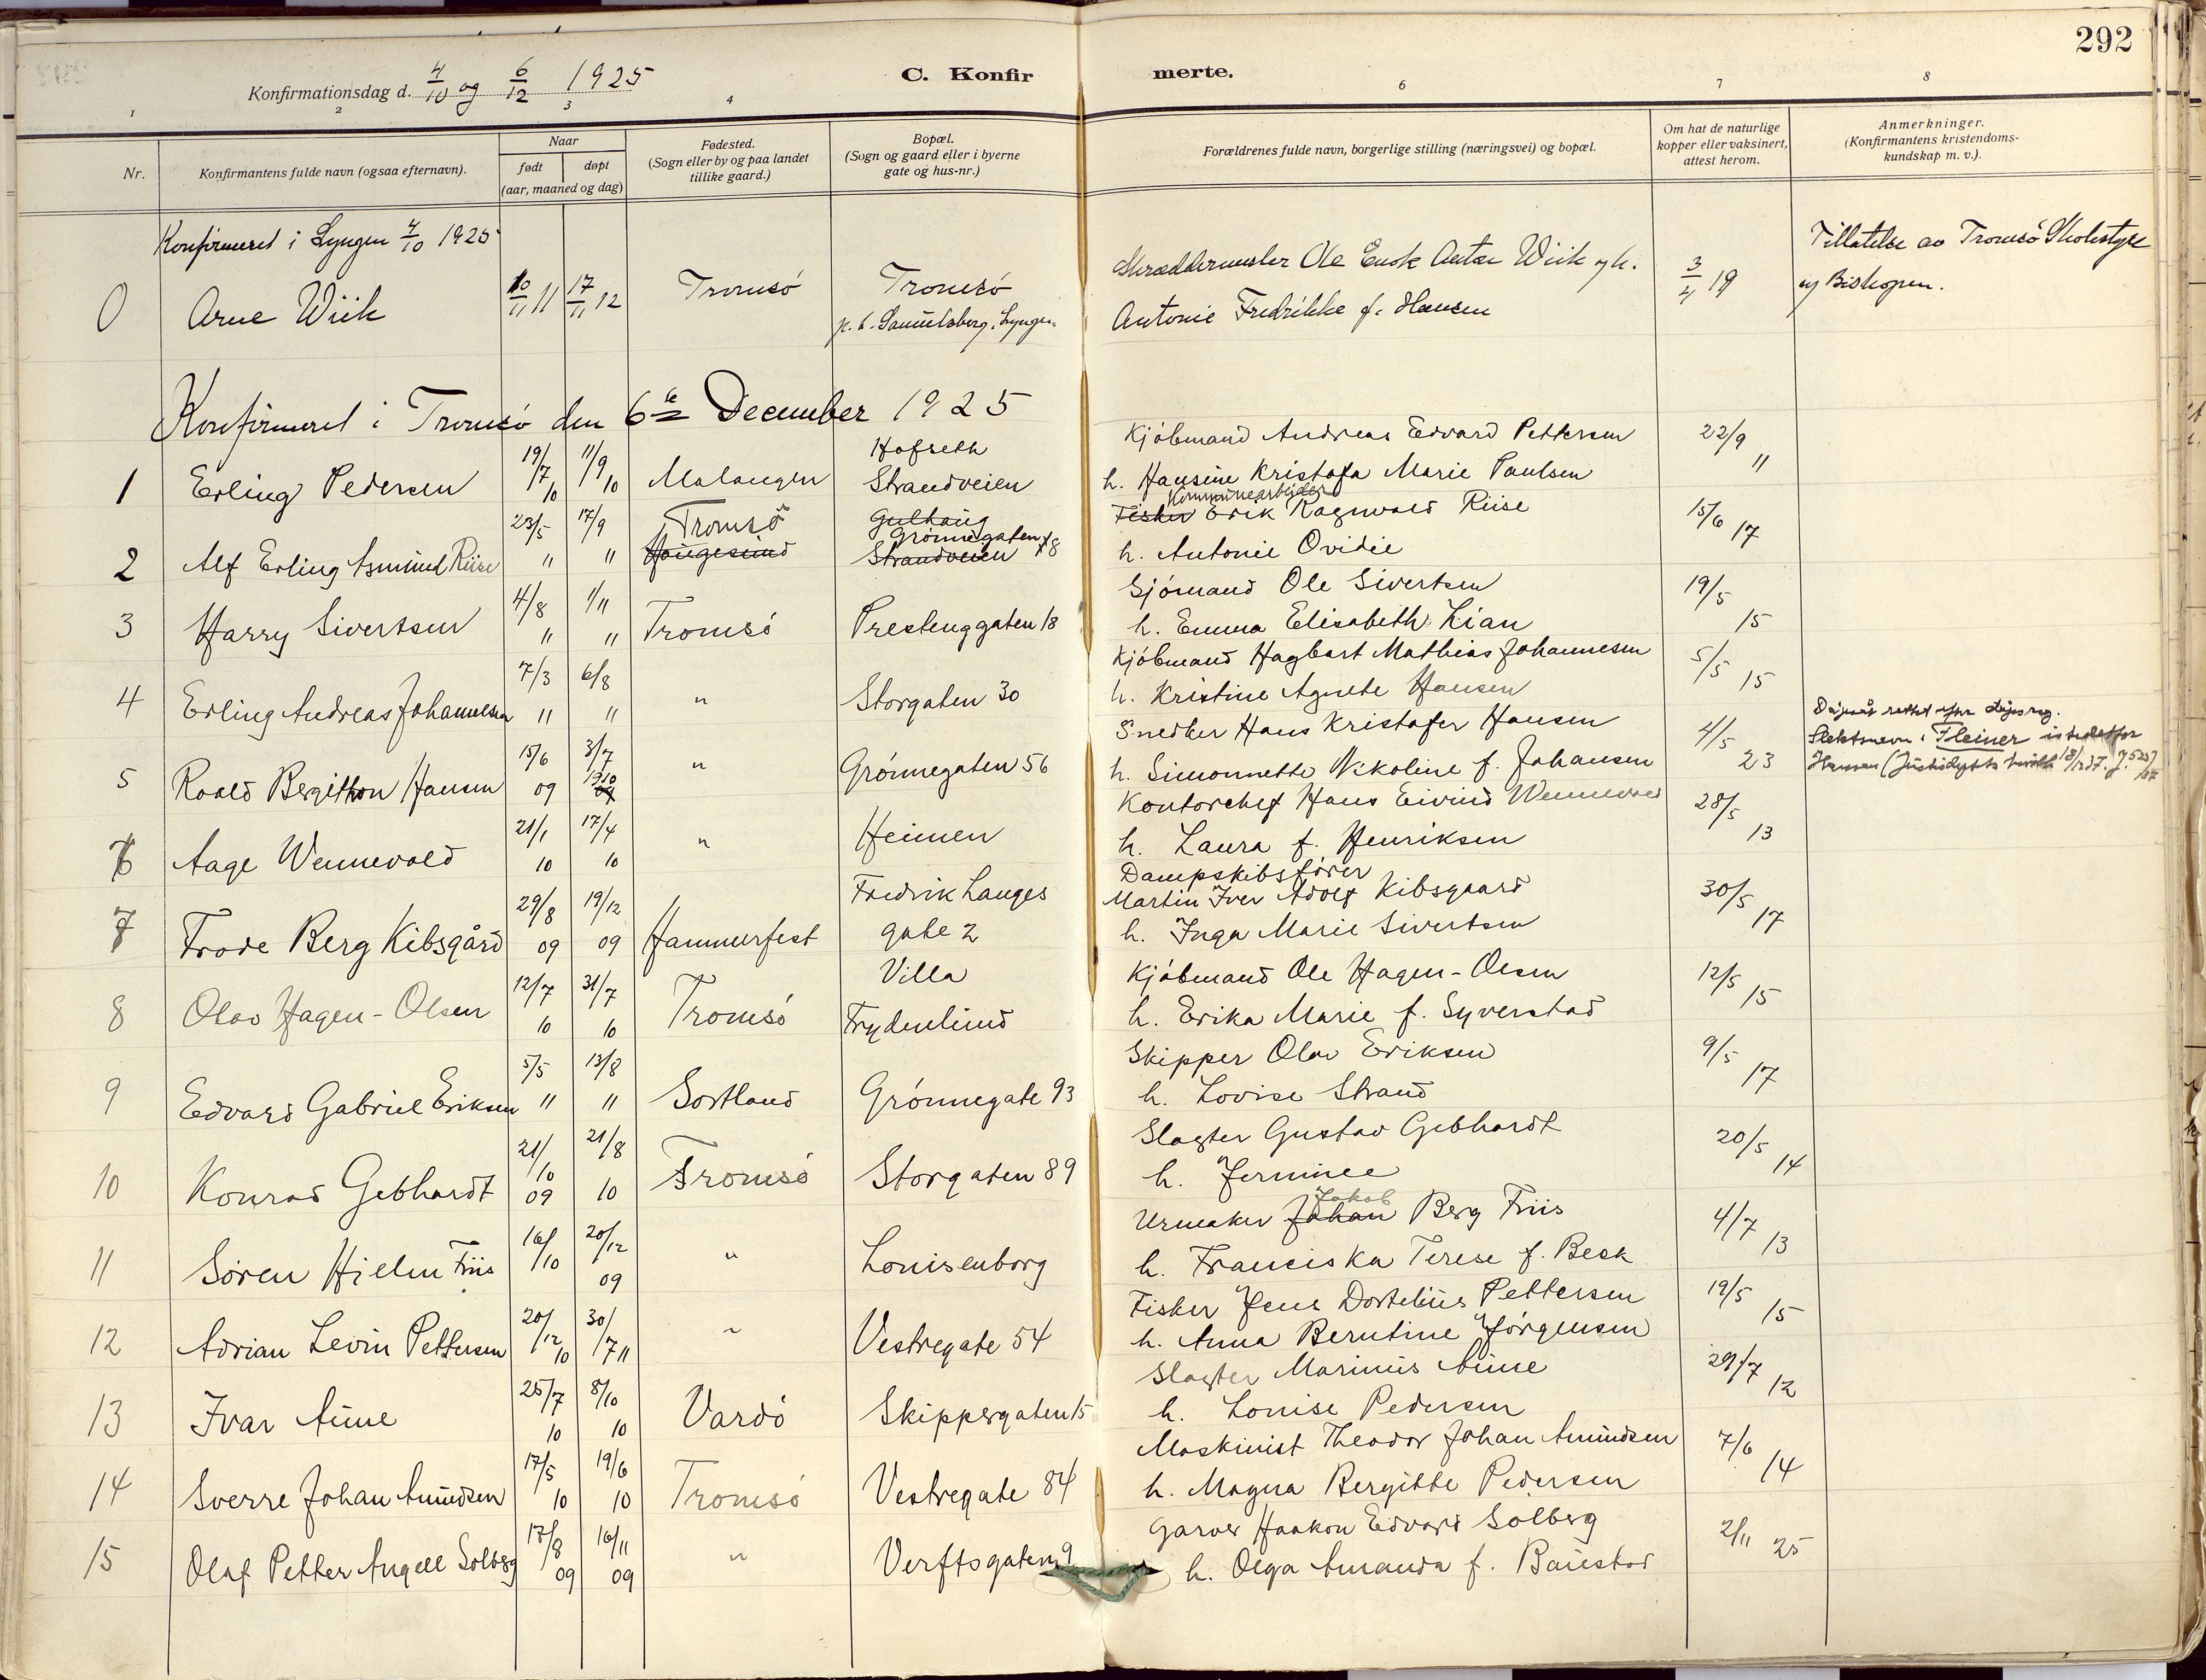 292
Konfirmationsdag d. 4/10 og 6/12 1925
C. Konfir merte.
1 2 3 4 6 7 8
Nr.
Konfirmantens fulde navn (ogsaa efternavn).
Naar
født døpt
(aar, maaned og dag)
Fødested.
(Sogn eller by og paa landet
tillike gaard.)
Bopæl.
(Sogn og gaard eller i byerne
gate og hus-nr.)
Forældrenes fulde navn, borgerlige stilling (næringsvei) og bopæl.
Om hat de naturlige
kopper eller vaksinert,
attest herom.
Anmerkninger.
(Konfirmantens kristendoms-
kundskap m. v.).
Konfirmeret i Lyngen 4/10 1925
0 Arne Wiik 10/11 11 17/11 12 Tromsö Tromsö
p. t. Samuelsberg, Lyngen
Skræddermester Ole Enok Wiik og h.
Antonie Fredrikke f. Hansen
3/4 19
Tillatelse av Tromsö Skolestyre
og Biskopen.
Konfirmeret i Tromsö den 6te December 1925
1 Erling Pedersen 19/7 10 11/9 10 Malangen Hofseth
Strandveien
Kjöbmand Andreas Edvard Pettersen
h. Hansine Kristofa Marie Paulsen
22/9 "
2 Alf Erling Asmund Riise 23/5 " 17/9 " Tromsö
Haugesund
Gulhaug
Grönnegaten 8
Strandveien
Kommunearbeider
Fisker Erik Ragnvald Riise
h. Antonie Ovidie
15/6 17
3 Harry Sivertsen 4/8 " 1/11 " Tromsö Prestenggaten 18
Sjömand Ole Sivertsen
h. Emma Elisabeth Lian
19/5 15
4 Erling Andreas Johannesen 7/3 " 6/8 " " Storgaten 30
Kjöbmand Hagbart Mathias Johannesen
h. Kristine Agnete Hansen
5/5 15
5 Roald Bergithon Hansen 15/6 09 3/7 1910 09 " Grönnegaten 56
Snedker Hans Kristofer Hansen
h. Simonnette Nikoline f. Johansen
4/5 23
Slektsnavn: Fleiner istedetfor
Hansen
6 Aage Wennevold 21/1 10 17/4 10 " Heimen
Kontorchef Hans Eivind Wennevold
h. Laura f. Henriksen
28/5 13
7 Frode Berg Kibsgård 29/8 09 19/12 09 Hammerfest Fredrik Langes
gate 2
Dampskibsförer
Martin Iver Adolf Kibsgaard
h. Inga Marie Sivertsen
30/5 17
8 Olav Hagen-Olsen 12/7 10 31/7 10 Tromsö Villa
Frydenlund
Kjöbmand Ole Hagen-Olsen
h. Erika Marie f. Syverstad
12/5 15
9 Edvard Gabriel Eriksen 5/5 " 13/8 " Sortland Grönnegate 93
Skipper Olav Eriksen
h. Lovise Strand
9/5 17
10 Konrad Gebhardt 21/10 09 21/8 10 Tromsö Storgaten 89
Slagter Gustav Gebhardt
h. Jerminee
20/5 14
11 Sören Hjelm Friis 16/10 20/12 09 " Louisenborg
Jakob
Urmaker Johan Berg Friis
h. Franciska Terese f. Beck
4/7 13
12 Adrian Levin Pettersen 20/12 10 30/7 11 " Vestregate 54
Fisker Jens Dortelius Pettersen
h. Anna Berntine Jörgensen
19/5 15
13 Ivar Aune 25/7 10 8/10 10 Vardö Skippergaten 15
Slagter Marinius Aune
h. Louise Pedersen
29/7 12
14 Sverre Johan Amundsen 17/5 10 19/6 10 Tromsö Vestregate 84
Maskinist Theodor Johan Amundsen
h. Magna Bergitte Pedersen
7/6 14
15 Olaf Petter Angell Solberg 17/8 09 16/11 09 " Verftsgaten 9
Garver Haakon Edvard Solberg
h. Olga Amanda f. Baustad
2/11 25